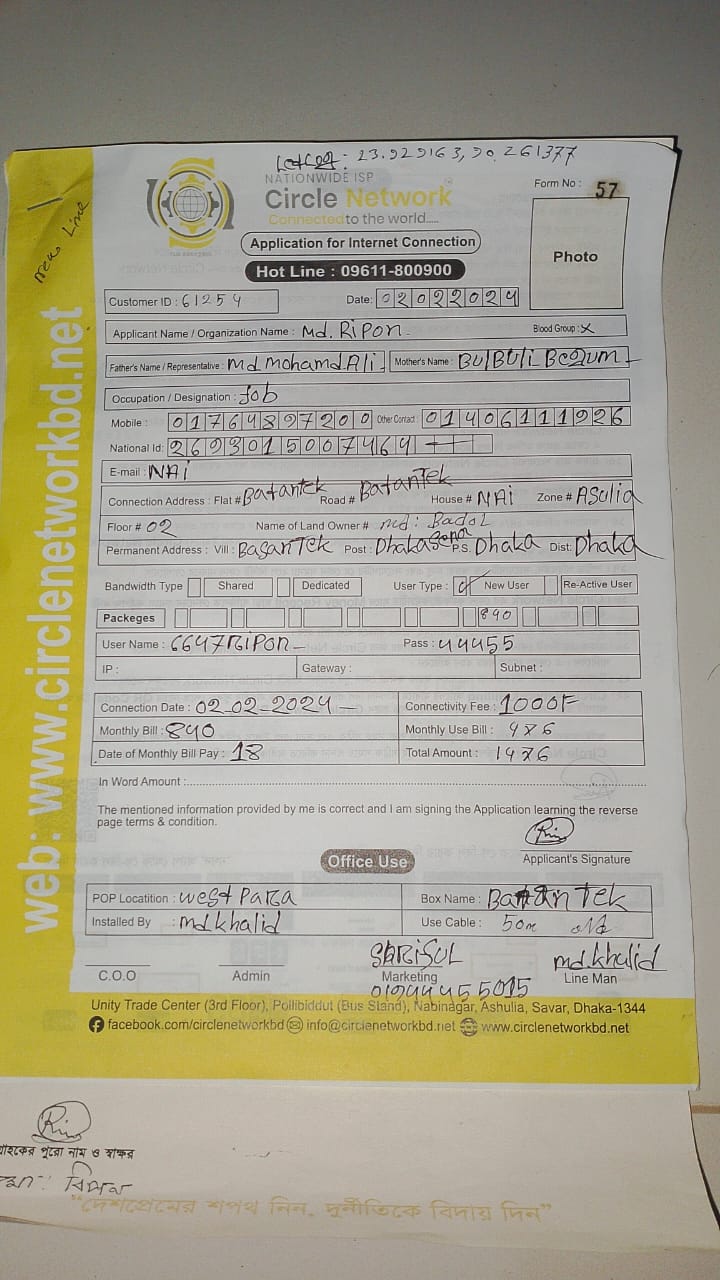 23.929163, 90.261377
NATIONWIDE ISP
Circle Network
Connected to the world.....
Form No : 57
Application for Internet Connection
Hot Line : 09611-800900
Photo
New Line
web: www.circlenetworkbd.net
Customer ID : 61254 Date: 02022024
Applicant Name / Organization Name : Md. Ripon Blood Group : X
Father's Name / Representative : Md Mohamd Ali Mother's Name : BulBuli Begum
Occupation / Designation : Job
Mobile : 01764897200 Other Contact : 01406111926
National Id: 2693015007464
E-mail : NAi
Connection Address : Flat # BatanTek Road # BatanTek House # NAi Zone # Asulia
Floor # 02 Name of Land Owner # md: Badol
Permanent Address : Vill : BasanTek Post : Dhakasena P.S. Dhaka Dist: Dhaka
Bandwidth Type Shared Dedicated User Type : New User Re-Active User
Packeges 840
User Name : 6647Ripon Pass : 44455
IP : Gateway : Subnet :
Connection Date : 02-02-2024 Connectivity Fee : 1000F
Monthly Bill : 840 Monthly Use Bill : 476
Date of Monthly Bill Pay : 18 Total Amount : 1476
In Word Amount :
The mentioned information provided by me is correct and I am signing the Application learning the reverse
page terms & condition.
Applicant's Signature
Office Use
POP Locatition : West Para Box Name : BatanTek
Installed By : md khalid Use Cable : 50m
SARiSUL md.khalid
C.O.O Admin Marketing Line Man
01944455015
Unity Trade Center (3rd Floor), Pollibiddut (Bus Stand), Nabinagar, Ashulia, Savar, Dhaka-1344
facebook.com/circlenetworkbd info@circlenetworkbd.net www.circlenetworkbd.net
গ্রাহকের পুরো নাম ও স্বাক্ষর
রিপন
“দেশপ্রেমের শপথ নিন, দুর্নীতিকে বিদায় দিন”